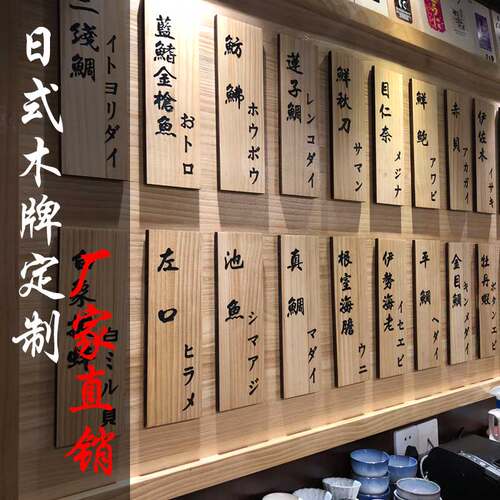 日式木牌定制
厂家直销
二线鯛
イトヨリダイ
藍鰭金槍魚
おトロ
魴鮄
ホウボウ
蓮子鯛
レンコダイ
鮮秋刀
サマン
目仁奈
メジナ
鮮鮑
アワビ
赤貝
アカガイ
伊佐木
イサキ
左口
ヒラメ
池魚
シマアジ
真鯛
マダイ
根室海膽
ウニ
伊勢海老
イセエビ
平鯛
ヘダイ
金目鯛
キンメダイ
牡丹蝦
ボタンエビ